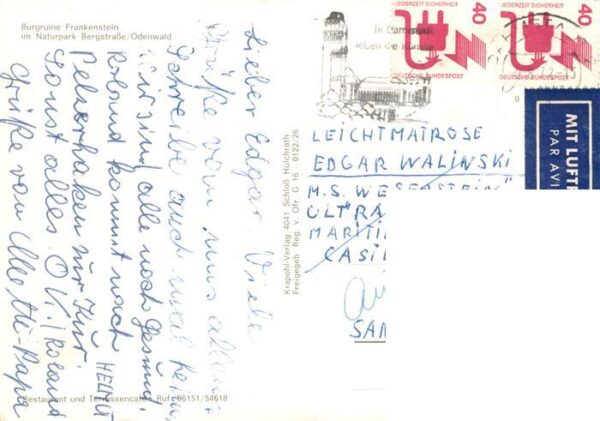 Burgruine Frankenstein
im Naturpark Bergstraße/Odenwald
Lieber Edgar. Viele
Grüße von uns allen
Schreibe auch mal
Wir sind alle noch gesund,
Roland kommt nach
Pelzerhaken zur Kur.
Sonst alles O.K.! Roland
Grüße von Papa
HELMUT
Restaurant und Terrassencafe · Ruf: 06151/54618
Krapohl-Verlag 4041 Schloß Hülchrath
Freigegeb. Reg v. Qfr. G 16 - 0122/26
In Darmstadt
leben die Künste
JEDERZEIT SICHERHEIT
40
DEUTSCHE BUNDESPOST
JEDERZEIT SICHERHEIT
40
DEUTSCHE BUNDESPOST
MIT LUFT
PAR AVI
LEICHTMATROSE
EDGAR WALINSKI
M.S. WESERSTEIN"
ULTRA
MARITI
CASI
SAN